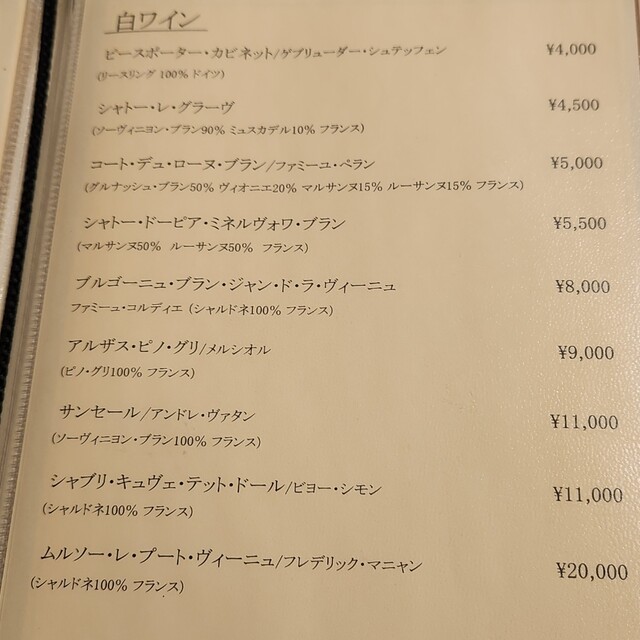 白ワイン
ピースポーター・カビネット/ゲブリューダー・シュテッフェン ¥4,000
(リースリング 100% ドイツ)
シャトー・レ・グラーヴ ¥4,500
(ソーヴィニヨン・ブラン90% ミュスカデル10% フランス)
コート・デュ・ローヌ・ブラン/ファミーユ・ペラン ¥5,000
(グルナッシュ・ブラン50% ヴィオニエ20% マルサンヌ15% ルーサンヌ15% フランス)
シャトー・ドーピア・ミネルヴォワ・ブラン ¥5,500
(マルサンヌ50% ルーサンヌ50% フランス)
ブルゴーニュ・ブラン・ジャン・ド・ラ・ヴィーニュ ¥8,000
ファミーユ・コルディエ (シャルドネ100% フランス)
アルザス・ピノ・グリ/メルシオル ¥9,000
(ピノ・グリ100% フランス)
サンセール/アンドレ・ヴァタン ¥11,000
(ソーヴィニヨン・ブラン100% フランス)
シャブリ・キュヴェ・テット・ドール/ビヨー・シモン ¥11,000
(シャルドネ100% フランス)
ムルソー・レ・プート・ヴィーニュ/フレデリック・マニャン ¥20,000
(シャルドネ100% フランス)